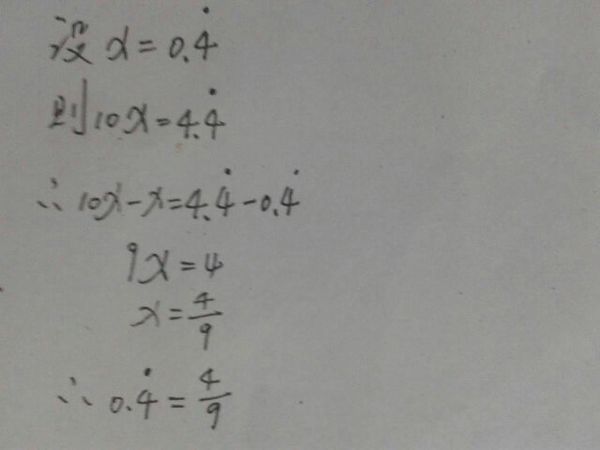 设x=0.4̇
则10x=4.4̇
∴10x-x=4.4̇-0.4̇
9x=4
x=4/9
∴0.4̇=4/9